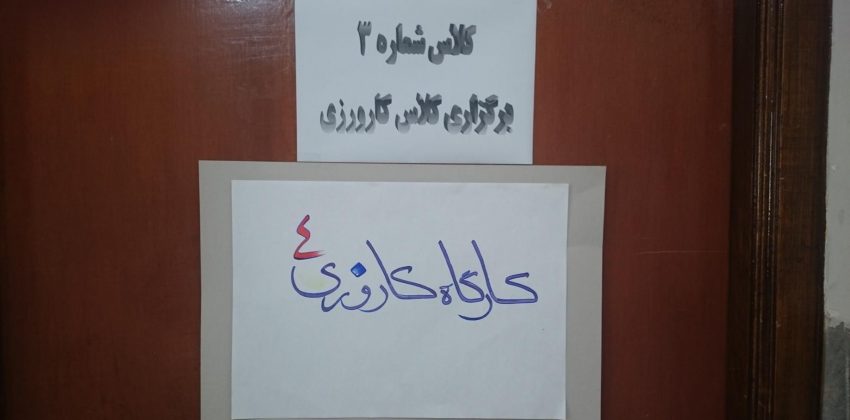 کلاس شماره ۳
برگزاری کلاس کارورزی
کارگاه کارورزی ٤